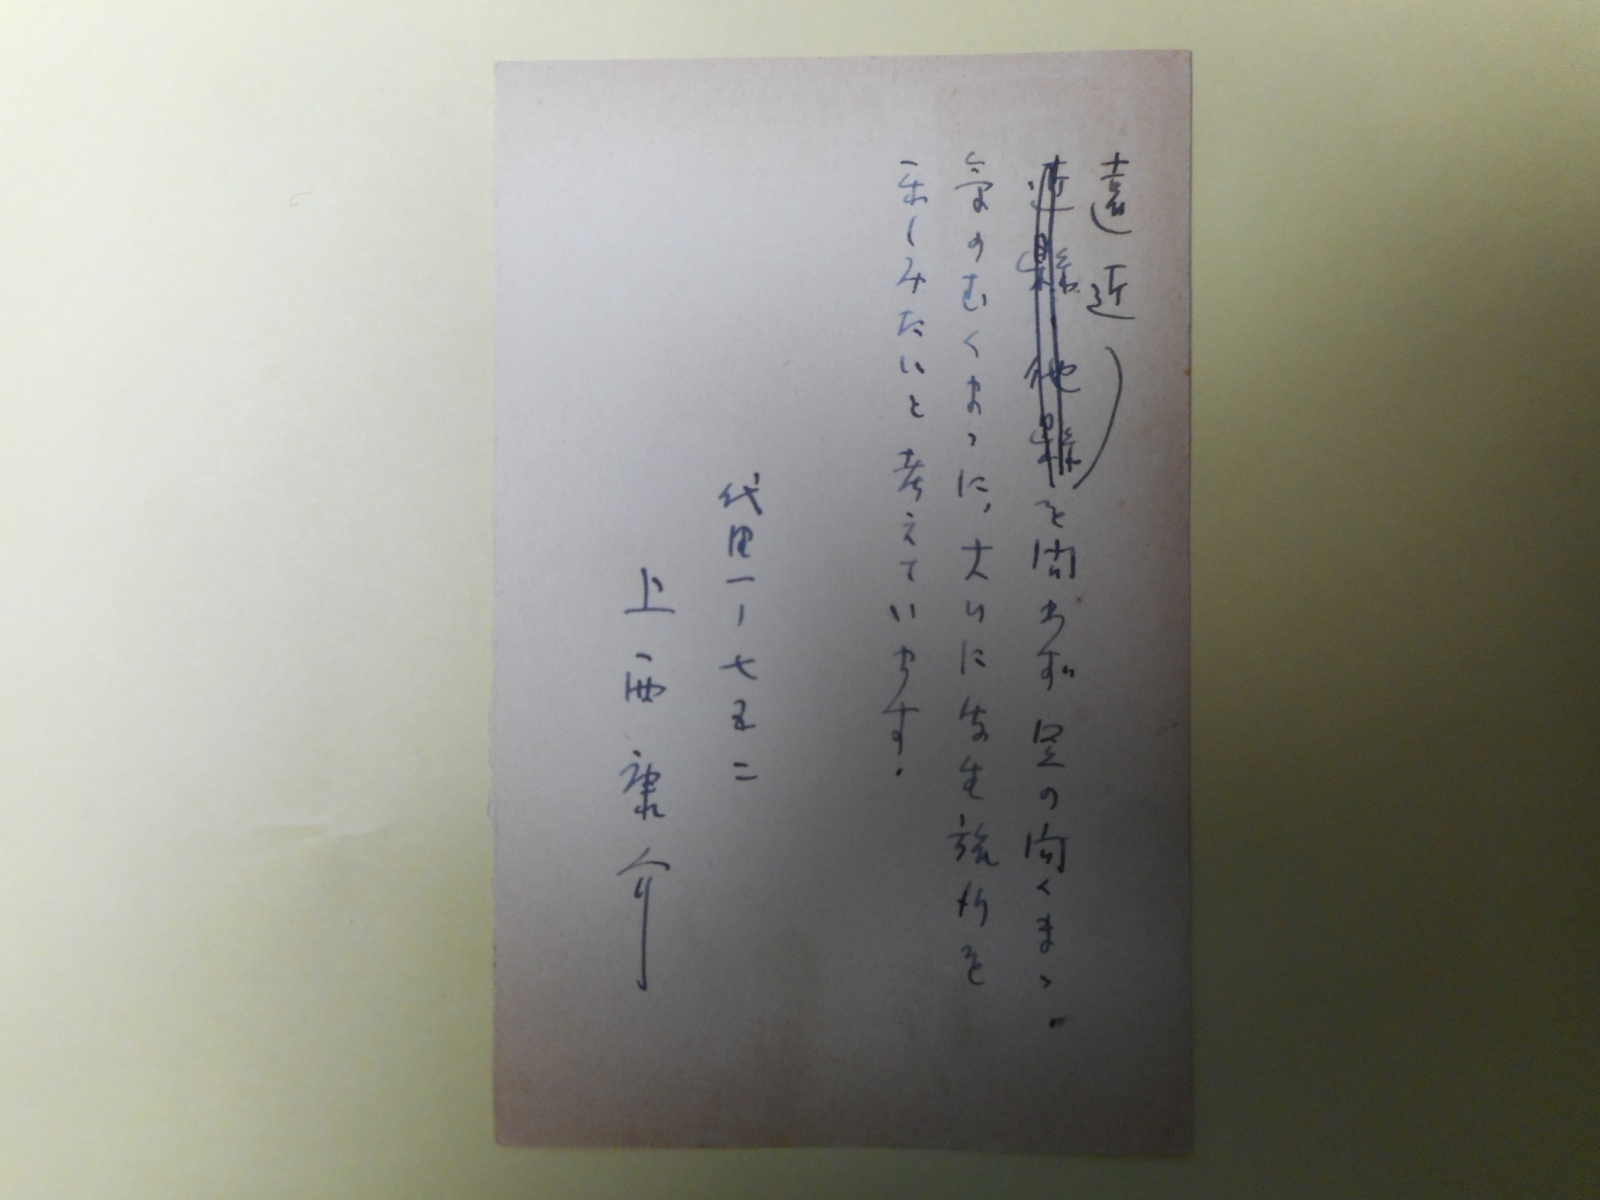 遠近
近縣他縣を問わず足の向くまゝ、
氣のむくまゝに、大いに写生旅行を
楽しみたいと考えています。
代田一ノ七五二
上西康介